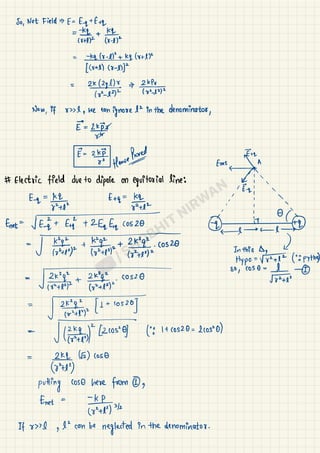 So, Net Field ⇒ E = E-q + E+q
= -kq/(r+l)² + kq/(r-l)²
= -kq (r-l)² + kq (r+l)² / [(r+l) (r-l)]²
= 2k (2ql) r / (r²-l²)² ⇒ 2kPr / (r²-l²)²
Now, If r>>l, we can ignore l² in the denominator,
E⃗ = 2kp⃗r / r⁴
E⃗ = 2kp⃗ / r³ Hence Proved
# Electric field due to dipole on equitorial line:
E-q = kq / r²+l² E+q = kq / r²+l²
Enet = √E-q² + E+q² + 2E-q E+q cos2θ
= √k²q²/(r²+l²)² + k²q²/(r²+l²)² + 2k²q²/(r²+l²)² · cos2θ
= √2k²q²/(r²+l²)² + 2k²q²/(r²+l²)² · cos2θ
= √2k²q²/(r²+l²)² [1 + cos2θ]
= √(2kq/(r²+l²))² [2cos²θ] (∵ 1+cos2θ = 2cos²θ)
= 2kq/(r²+l²) (√2) cosθ
putting cosθ here from ①,
Enet = -kp / (r²+l²)^3/2
If r>>l, l² can be neglected in the denominator.
E+q
Enet
A
E-q
r
θ
-q
+q
l
l
In this Δ,
Hypo = √r²+l² (∵ Pytho
so, cosθ = l / √r²+l² -①
NIRWAN